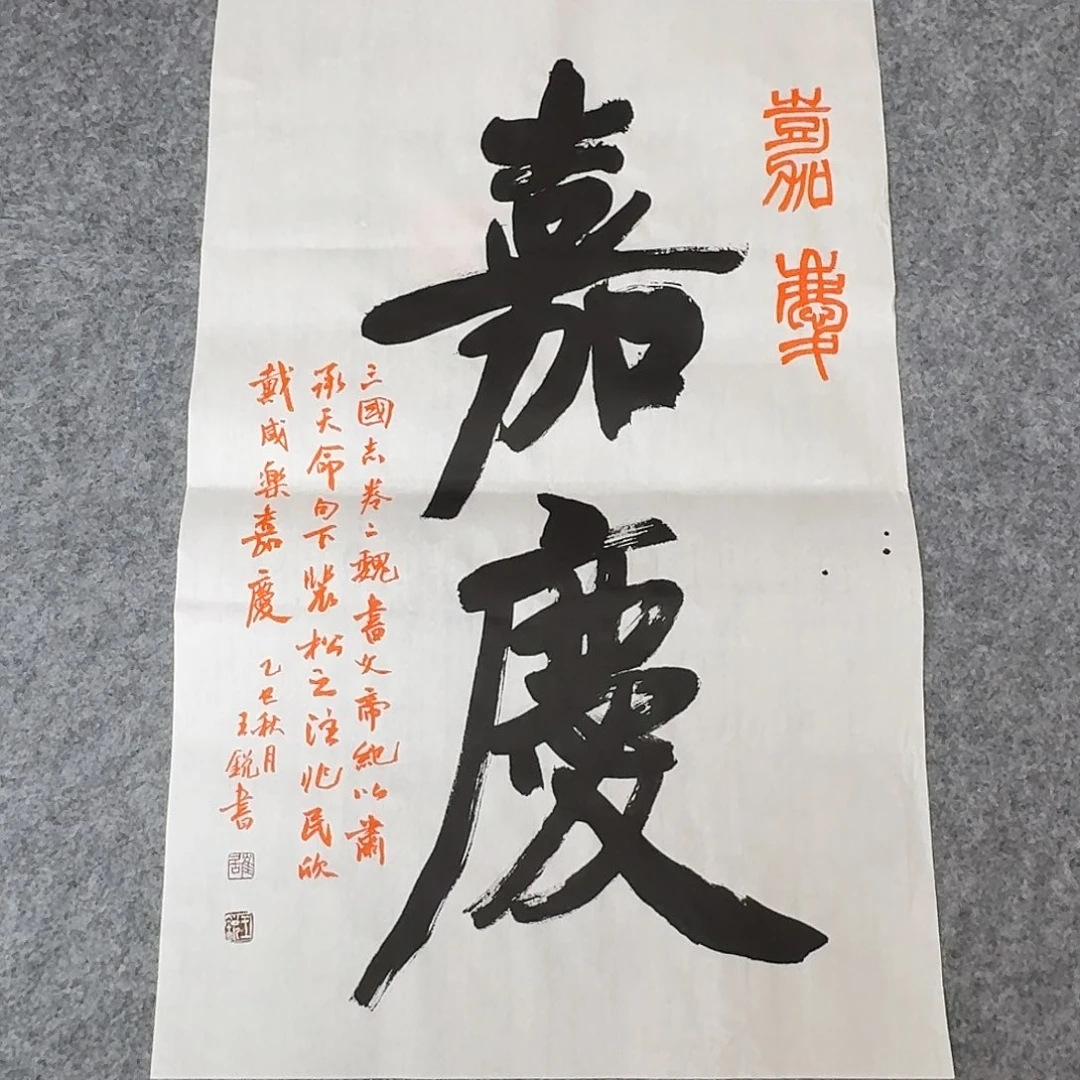 嘉慶
嘉慶
三國志卷二魏書文帝紀以肅
承天命句下裴松之注兆民欣
戴咸樂嘉慶
乙巳秋月
王銳書